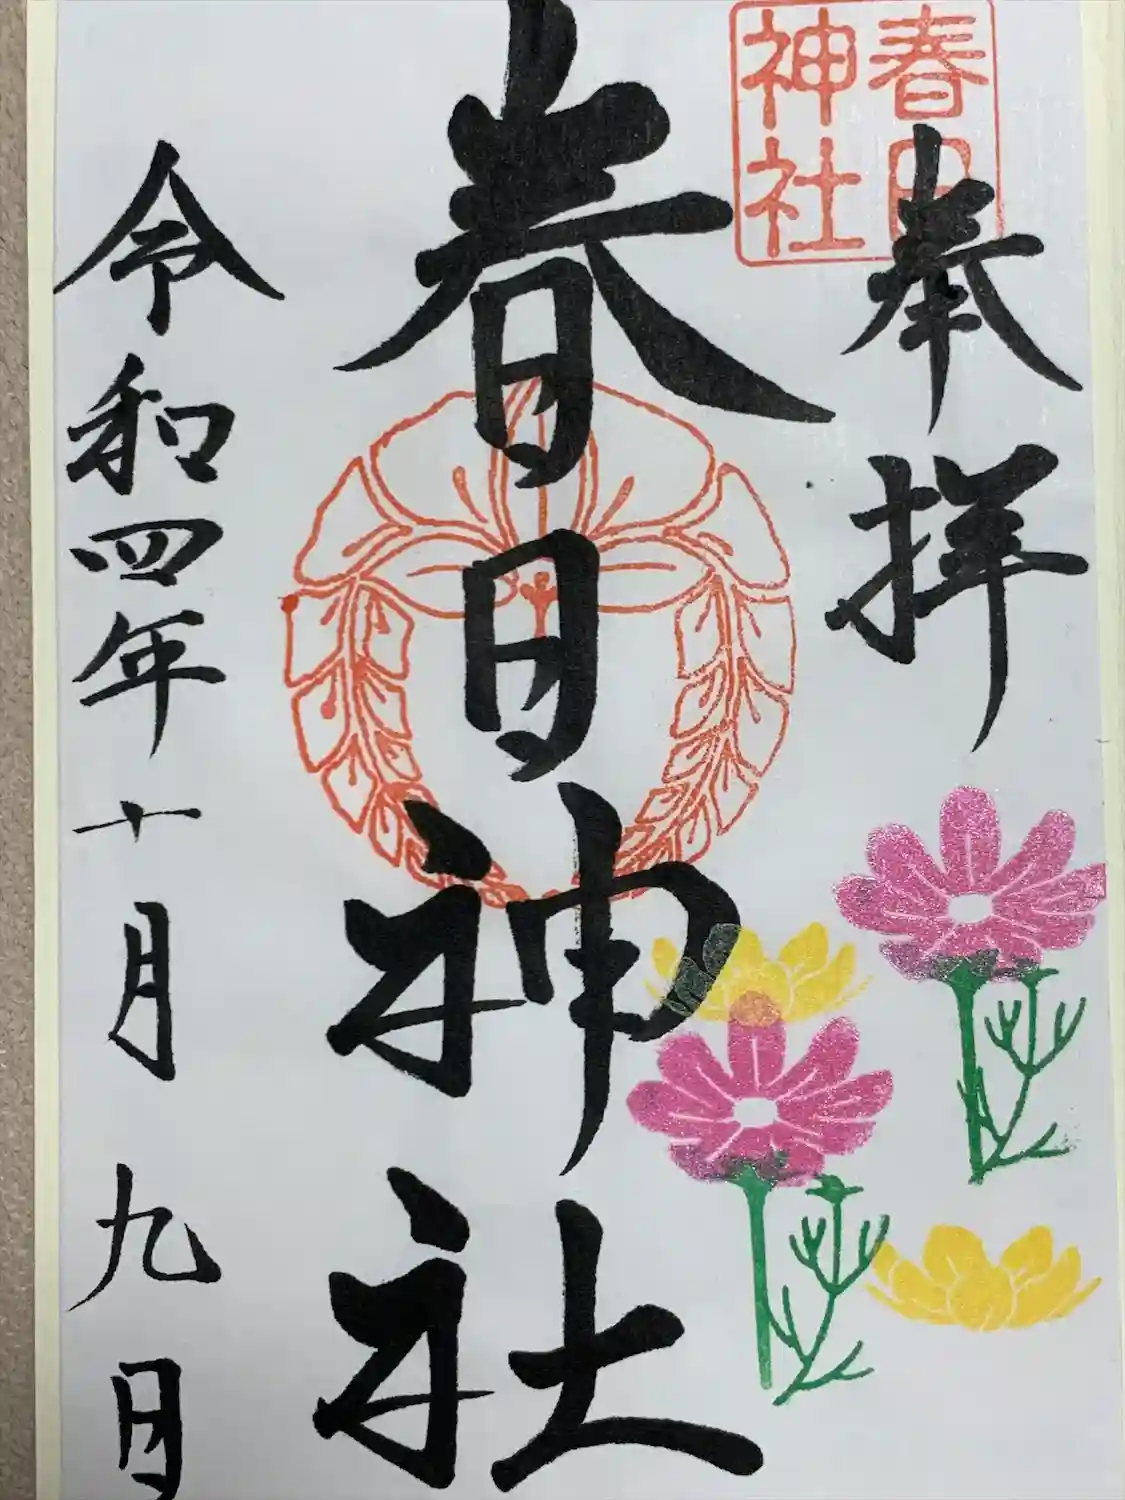 春日
神社
奉拝
春日神社
令和四年十月九日